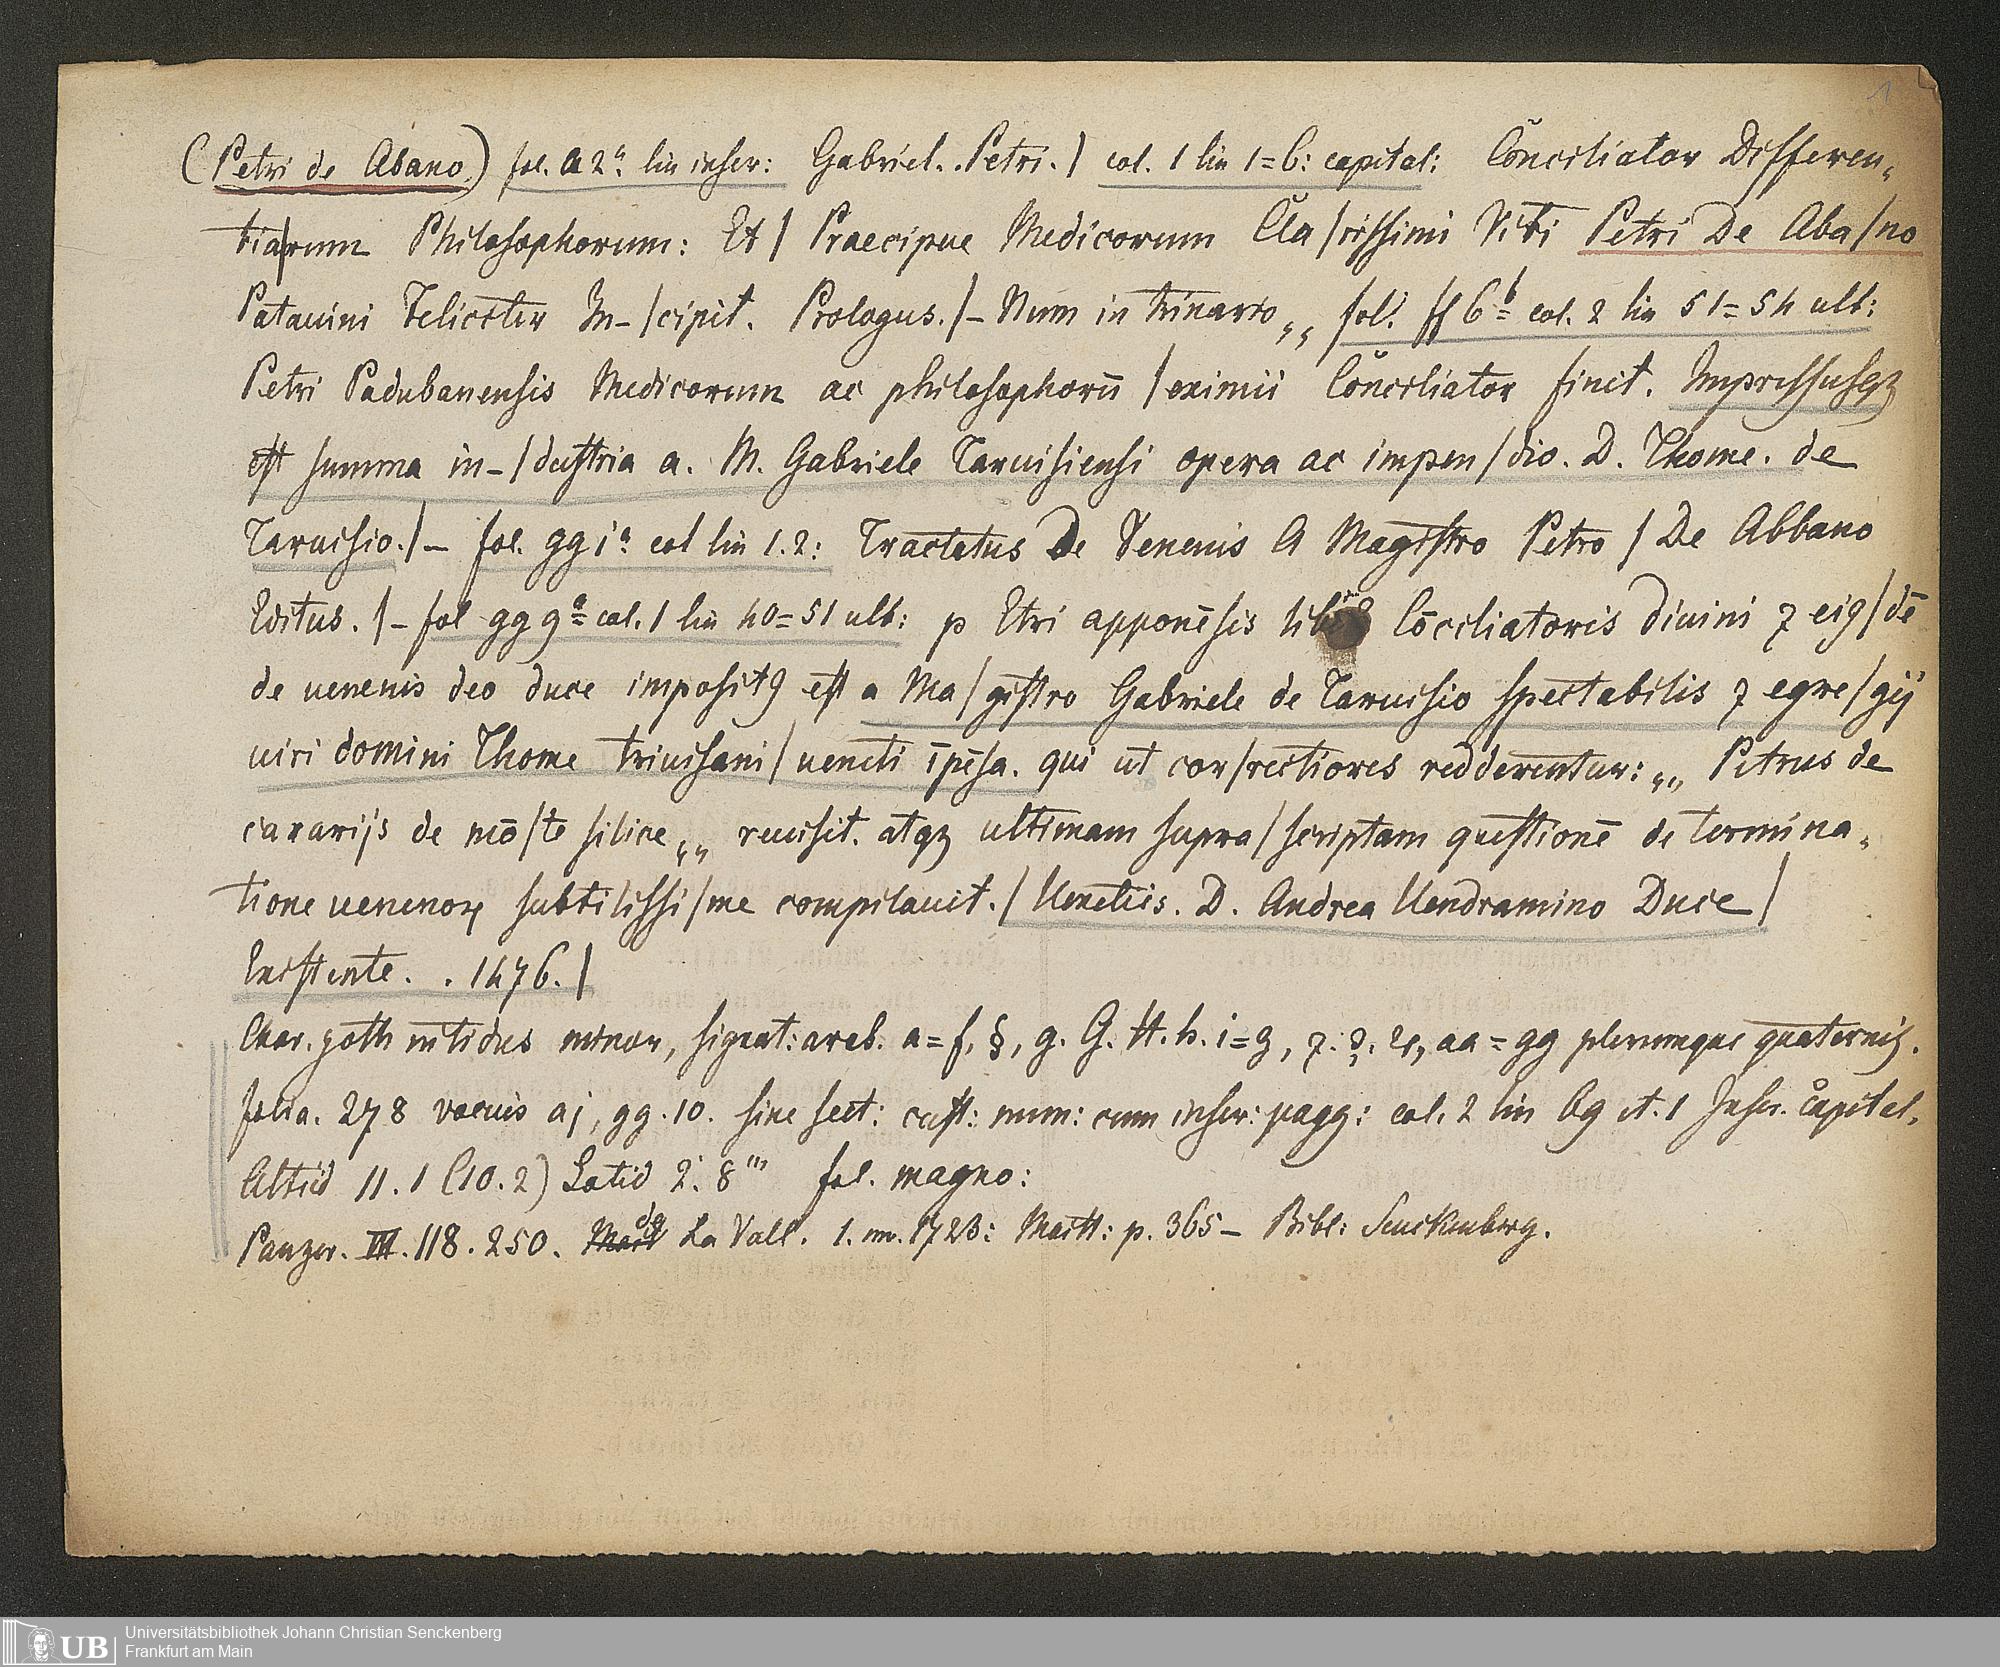 1
(Petri de Abano.) fol. a 2ª. lin inscr: Gabriel. .Petri. / col. 1 lin 1=6: capital: Cōnciliator Differen„
tia/rum Philosophorum: Et / Praecipue Medicorum Cla/rissimi Viri Petri De Aba/no
Patauini Feliciter In-/cipit. Prologus. /- Num in trinario „„ fol. ff 6ᵇ= col. 2 lin 51=54 ult:
Petri Padubanensis Medicorum ac philosophorū / eximii Cōnciliator finit. Impressusqꝫ
est summa in-/dustria a. M. Gabriele Taruisiensi opera ac impen/dio. D. Thome. de
Taruisio. /- fol. gg iª. col lin 1. 2: Tractatus De Venenis A Magistro Petro / De Abbano
Editus. /- fol gg 9ª= col. 1 lin 40=51 ult: p Etri apponēsis Cōciliatoris diuini ⁊ eiꝯ/dē
de uenenis deo duce impositꝯ est a Ma/gistro Gabriele de Taruisio spectabilis ⁊ egre/gij
uiri domini Thome triuisani / ueneti īpēsa. qui ut cor/rectiores redderentur: „„ Petrus de
cararijs de mō/te silice „„ reuisit. atqꝫ ultimam supra/scriptam questionē de termina„
tione uenenoꝝ subtilissi/me compilauit. / Uenetiis. D. Andrea Uendramino Duce /
Existente. . 1476. /
Char. goth nitidus minor, signat: areb. a=f, §, g. G. H. h. i=z, ⁊. ꝯ. ꝝ, aa=gg plerumque quaternis.
folia. 278 vacuis aj, gg. 10. sine sect: cust: num: cum inscr: pagg: col. 2 lin et. 1 Inscr. capital.
Altid 11. 1 (10. 2) Latid 2. 8''' fol. magno:
Panzer. III. 118. 250. de La Vall. 1. nr. 1723: Maitt: p. 365 – Bibl: Senckenberg.
UB Universitätsbibliothek Johann Christian Senckenberg
Frankfurt am Main